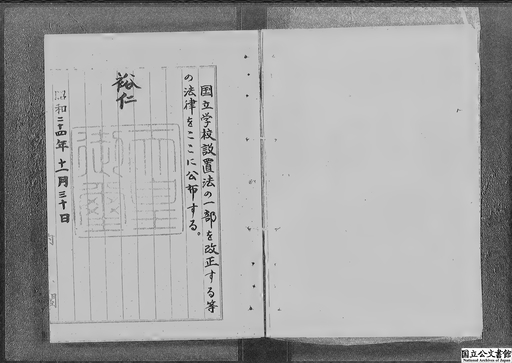 国立学校設置法の一部を改正する等
の法律をここに公布する。
裕仁
昭和二十四年十一月三十日
内閣
国立公文書館
National Archives of Japan